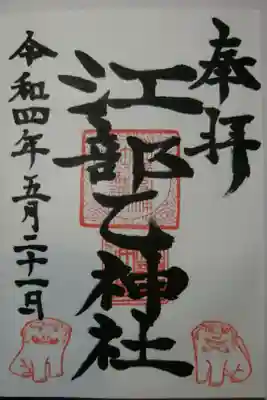 奉拝
江部乙神社
令和四年五月二十一日